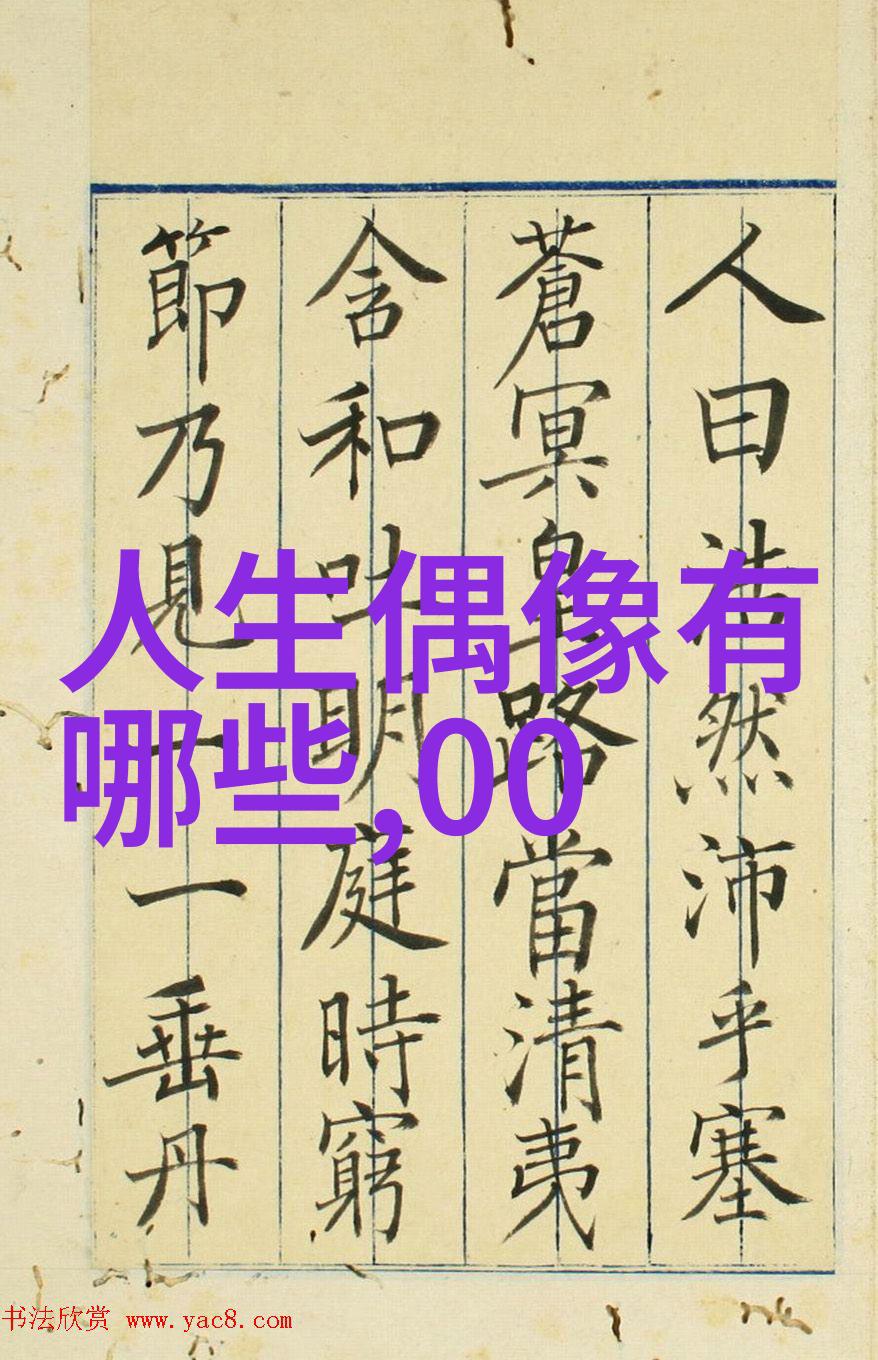 人曰浩然沛乎塞
蒼冥皇路當清夷
含和吐明庭時窮
節乃見一一垂丹
人生偶像有
哪些,00
书法欣赏 www.yac8.com